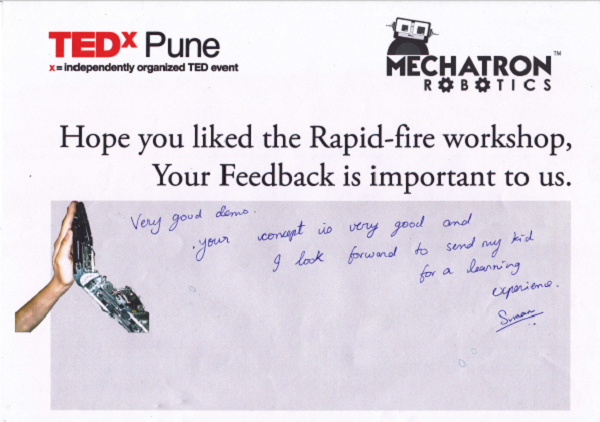 TEDx Pune
x = independently organized TED event
MECHATRON™
ROBOTICS
Hope you liked the Rapid-fire workshop,
Your Feedback is important to us.
Very good demo.
your concept is very good and
I look forward to send my kid
for a learning
experience.
Suman